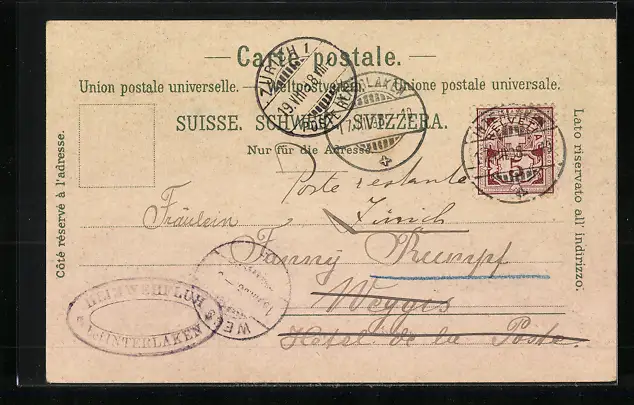 — Carte postale. —
Union postale universelle. — Weltpostverein. — Unione postale universale.
SUISSE. SCHWEIZ. SVIZZERA.
Nur für die Adresse.
Côté réservé à l'adresse.
Lato riservato all' indirizzo.
ZÜRICH 1
19.VIII.
INTERLAKEN
Poste restante
Zürich
Fräulein
Fanny Rumpf
Weggis
Hôtel de la Poste
HEIMWEHFLUH
INTERLAKEN
5